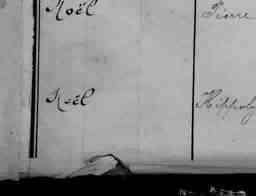 Noël Pierre
Noël Hippoly